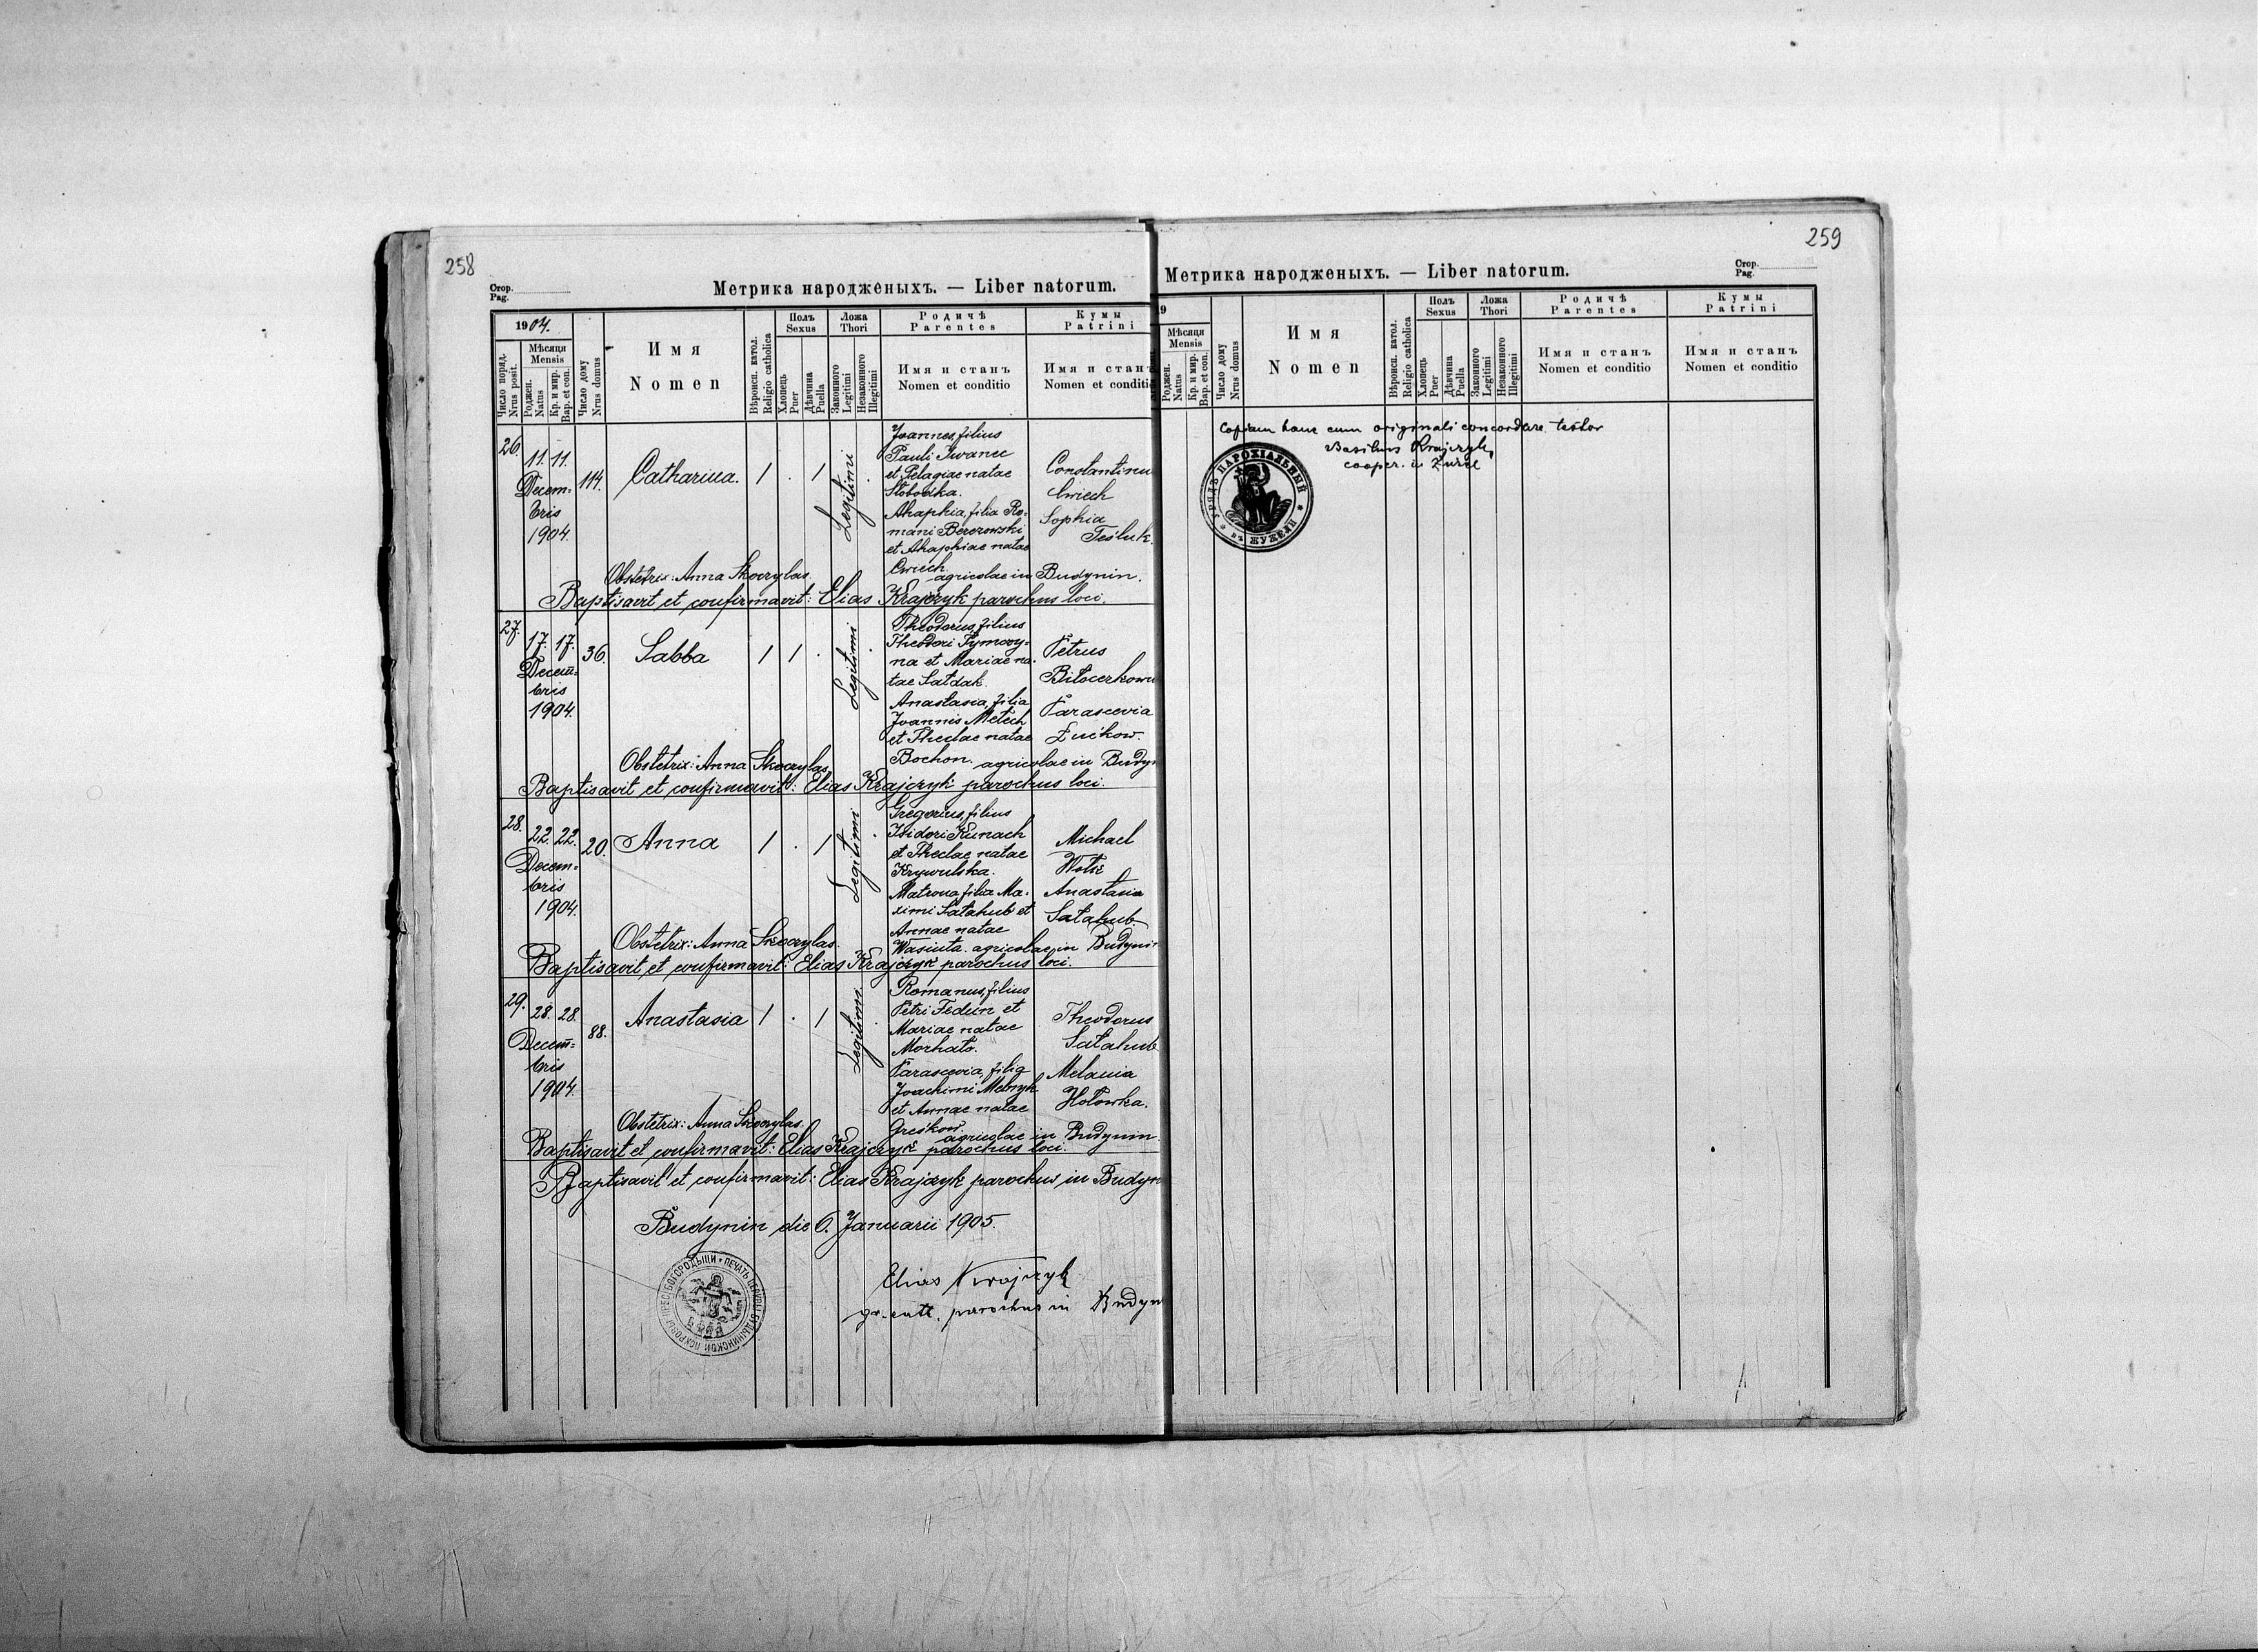 258
Стор.
Pag.
Метрика народженыхъ. — Liber natorum.
1904.
Число поряд.
Nrus posit.
Мѣсяця
Mensis
Роджен.
Natus
Кр. и мир.
Bap. et con.
Число дому
Nrus domus
Имя
Nomen
Вѣроисп. катол.
Religio catholica
Полъ
Sexus
Хлопець
Puer
Дѣвчина
Puella
Ложа
Thori
Законного
Legitimi
Незаконного
Illegitimi
Родичѣ
Parentes
Имя и станъ
Nomen et conditio
Кумы
Patrini
Имя и стан
Nomen et conditi
26. 11. 11.
Decem=
bris
1904.
114.
Catharina.
1 . 1
Legitimi
Joannes, filius
Pauli Iwanec
et Pelagiae natae
Ahaphia, filia Ro-
mani Berezowski
et Ahaphiae natae
Cwiech.
agricolae in Budynin.
Constantinu
Cwiech
Sophia
Tesluk.
Obstetrix: Anna Skoczylas.
Baptisavit et confirmavit: Elias Krajczyk parochus loci.
27. 17. 17.
Decem=
bris
1904.
36.
Sabba
1 1 .
Legitimi
Theodorus, filius
Theodori Tymczy-
na et Mariae na-
tae Sałdak.
Anastasia, filia
Joannis Melech
et Theclae natae
Bochon. agricolae in Budy
Petrus
Parascevia
Zuikow.
Obstetrix: Anna Skoczylas.
Baptisavit et confirmavit: Elias Krajczyk parochus loci.
28. 22. 22.
Decem=
bris
1904.
20.
Anna
1 . 1
Legitimi
Gregorius, filius
Isidori Kunach
et Theclae natae
Krywulska.
Matrona, filia Ma-
ximi Sałahub et
Annae natae
Wasiuta. agricolae in Budyni
Michael
Wołk
Anastasia
Sałahub
Obstetrix: Anna Skoczylas.
Baptisavit et confirmavit: Elias Krajczyk parochus loci.
29. 28. 28.
Decem=
bris
1904.
88.
Anastasia
1 . 1
Legitimi
Romanus, filius
Petri Fedun et
Mariae natae
Morhało.
Parascevia, filia
Joachimi Melnyk
et Annae natae
Greskow.
agricolae in Budynin.
Theodorus
Sałahub
Melania
Hołowka.
Obstetrix: Anna Skoczylas.
Baptisavit et confirmavit: Elias Krajczyk parochus loci.
Baptisavit et confirmavit: Elias Krajczyk parochus in Budyn
Budynin die 6. Januarii 1905.
Elias Krajczyk
gr. cath. parochus in Budyn
259
Стор.
Pag.
Метрика народженыхъ. — Liber natorum.
9
Мѣсяця
Mensis
Роджен.
Natus
Кр. и мир.
Bap. et con.
Число дому
Nrus domus
Имя
Nomen
Вѣроисп. катол.
Religio catholica
Полъ
Sexus
Хлопець
Puer
Дѣвчина
Puella
Ложа
Thori
Законного
Legitimi
Незаконного
Illegitimi
Родичѣ
Parentes
Имя и станъ
Nomen et conditio
Кумы
Patrini
Имя и станъ
Nomen et conditio
Copiam hanc cum originali concordare testor
Basilius Krajczyk,
cooper. in Żużel
УРЯДЪ ПАРОХІАЛЬНЫЙ
въ ЖУЖЕЛИ